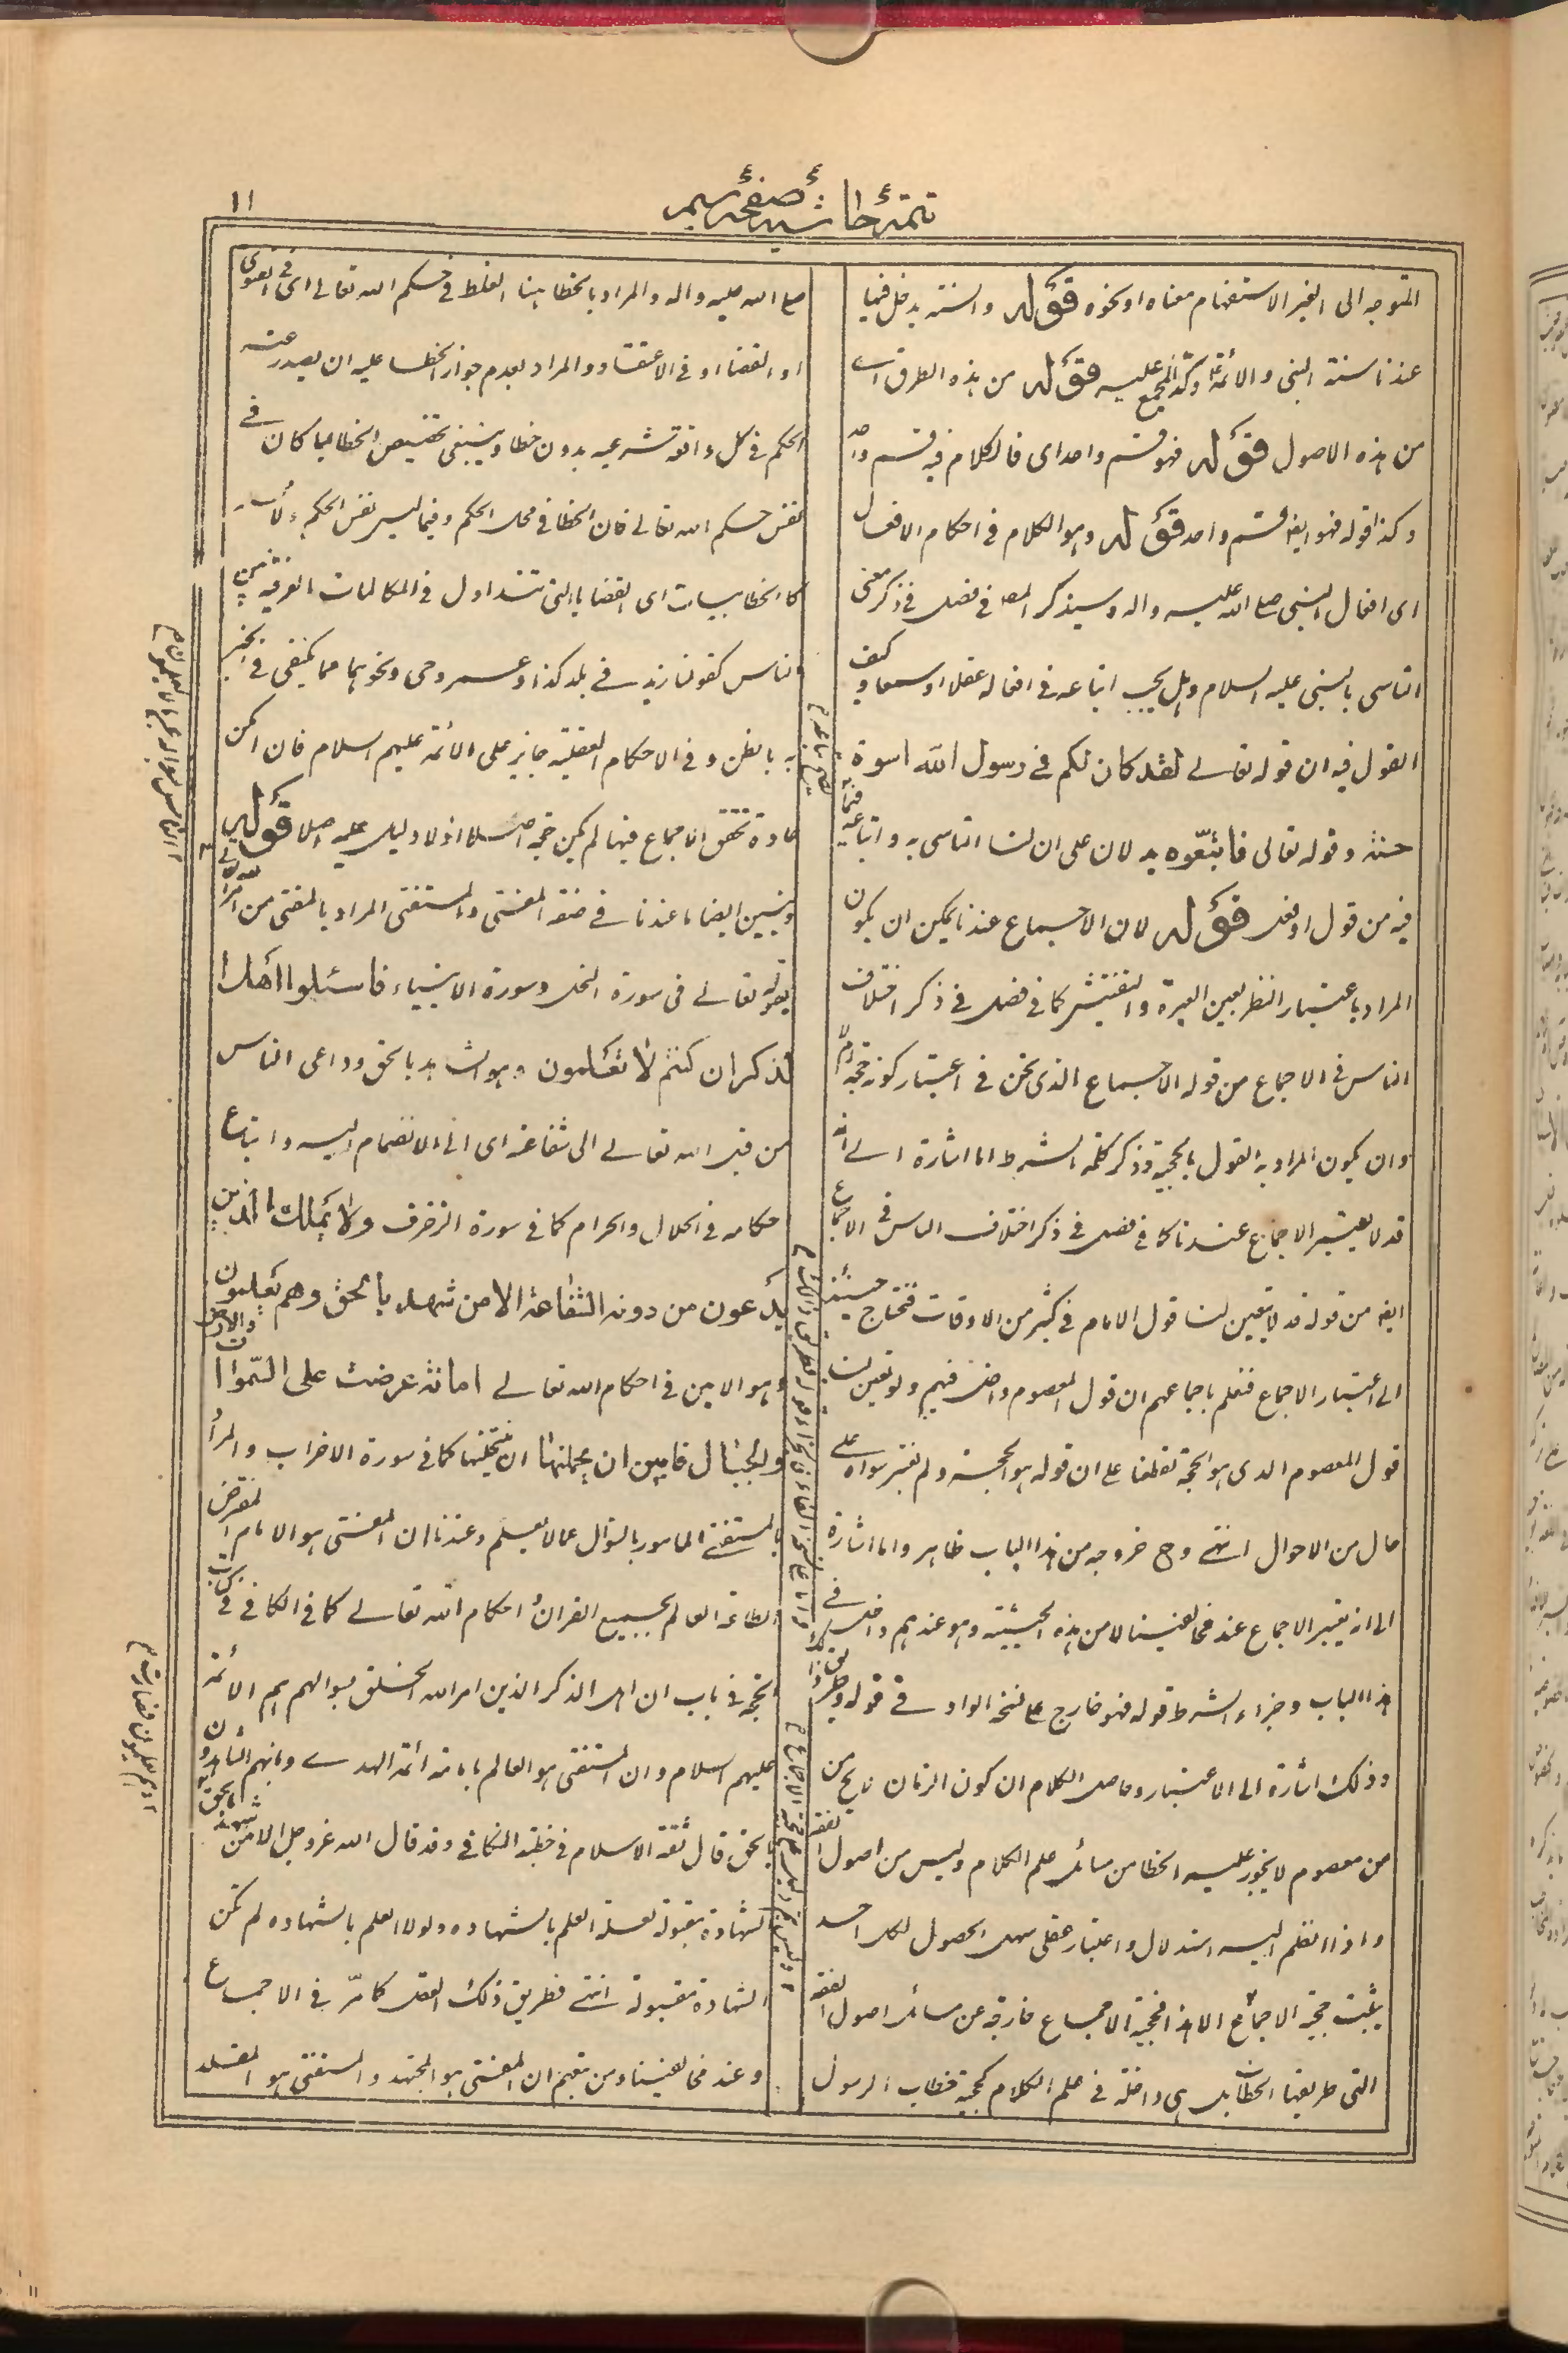 ۱۱
تتمهٔ حاشیهٔ صفحهٔ
المتوجه الى الغير الاستفهام معناه او نحوه قوله والسنة يدخل فيها
عندنا سنة النبي والائمة وكذا المجمع عليه قوله من هذه الطرق اى
من هذه الاصول قوله فهو قسم واحد اى فالكلام فيه قسم واحد
وكذا قوله فهو ايضا قسم واحد قوله وهو الكلام فى احكام الافعال
اى افعال النبى صلى الله عليه واله وسيذكر المص فى فصل فى ذكر معنى
التاسى بالنبى عليه السلام وهل يجب اتباعه فى افعاله عقلا او سمعا وكيف
القول فيه ان قوله تعالى لقد كان لكم فى رسول الله اسوة
حسنة وقوله تعالى فاتبعوه يدلان على ان لنا التاسى به واتباعه فيما
فيه من قول او فعل قوله لان الاجماع عندنا يمكن ان يكون
المراد باعتبار النظر بعين العبرة والتفتيش كما فى فصل فى ذكر اختلاف
الناس فى الاجماع من قوله الاجماع الذى نحن فى اعتبار كونه حجة
وان يكون المراد به القول بالحجية وذكر كلمة الشرط اما اشارة الى انه
قد لا يعتبر الاجماع عندنا كما فى فصل فى ذكر اختلاف الناس فى الاجماع
ايضا من قوله قد لا يتعين لنا قول الامام فى كثير من الاوقات فنحتاج حينئذ
الى اعتبار الاجماع فنعلم باجماعهم ان قول المعصوم داخل فيهم ولو تعين لنا
قول المعصوم الذى هو الحجة لقطعنا على ان قوله هو الحجة ولم نعتبر سواه على
حال من الاحوال انتهى وح خروجه من هذا الباب ظاهر واما اشارة
الى انه يعتبر الاجماع عند مخالفينا لا من هذه الحيثية وهو عندهم داخل فى
هذا الباب وجزاء الشرط قوله فهو خارج على نسخة الواو فى قوله
وذلك اشارة الى الاعتبار وحاصل الكلام ان كون الزمان لا يخ من
من معصوم لا يجوز عليه الخطا من مسائل علم الكلام وليس من اصول الفقه
واذا انظم اليه استدلال واعتبار عقلى سهل الحصول لكل احد
يثبت حجية الاجماع الا هذا فحجية الاجماع خارجة عن مسائل اصول الفقه
التى طريقها الخطاب بل هى داخلة فى علم الكلام كحجية خطاب الرسول
صلى الله عليه واله والمراد بالخطا هنا الغلط فى حكم الله تعالى اى فى الفتوى
او القضا او فى الاعتقاد والمراد بعدم جواز الخطا عليه ان يصدر عنه
الحكم فى كل واقعة شرعية بدون خطا وينبغى تخصيص الخطا بما كان فى
نفس حكم الله تعالى فان الخطا فى محل الحكم وفيما ليس نفس الحكم
كالخطابيات اى القضايا التى تتداول فى المكالمات العرفية بين
الناس كقولنا زيد فى بلد كذا وعمرو حى ونحوهما مما يكتفى فى الخبر
به بالظن وفى الاحكام العقلية جايز على الائمة عليهم السلام فان امكن
عادة تحقق الاجماع فيها لم يكن حجة اصلا اذ لا دليل عليه اصلا قوله
ونبين ايضا ما عندنا فى صفة المفتى والمستفتى المراد بالمفتى من امر الله تعالى
بقوله تعالى فى سورة النحل وسورة الانبياء فاسئلوا اهل ا
لذكر ان كنتم لا تعلمون وهو الشاهد بالحق وداعى الناس
من قبل الله تعالى الى شفاعته اى الى الانضمام اليه واتباع
احكامه فى الحلال والحرام كما فى سورة الزخرف ولا يملك الذين
يدعون من دونه الشفاعة الا من شهد بالحق وهم يعلمون
وهو الامين فى احكام الله تعالى امانته عرضت على السموات والارض
والجبال فابين ان يحملنها كما فى سورة الاحزاب والمراد
بالمستفتى المامور بالسؤال عما لا يعلم وعندنا ان المفتى هو الامام المفترض
الطاعة العالم بجميع القران احكام الله تعالى كما فى الكافى فى كتاب
الحجة فى باب ان اهل الذكر الذين امر الله الخلق بسوالهم هم الائمة
عليهم السلام وان المستفتى هو العالم بامامة ائمة الهدى وانهم الشاهدون
بالحق قال ثقة الاسلام فى خطبة الكافى وقد قال الله عز وجل الا من شهد بالحق
الشهادة مقبولة لعلة العلم بالشهادة ولولا العلم بالشهادة لم تكن
الشهادة مقبولة انتهى فطريق ذلك العقل كما مر فى الاجماع
وعند مخالفينا ومن تبعهم ان المفتى هو المجتهد والمستفتى هو المقلد